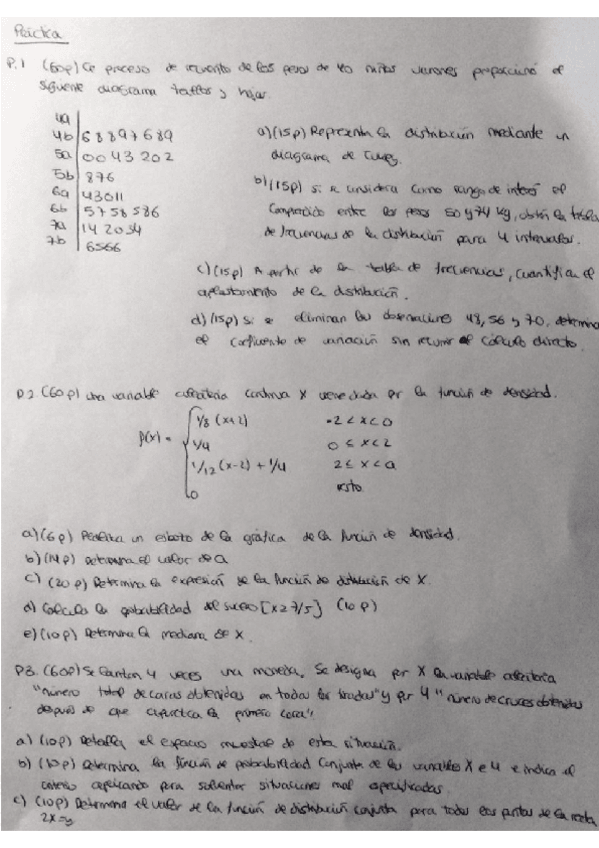 Práctica
P.1 (60p) Ce proceso de recuento de los pesos de 40 niños varones proporcionó el
siguiente diagrama tallos y hojas.
4a
4b 68897689
5a 0043202
5b 876
6a 43011
6b 5758586
7a 142034
7b 6566
a) (15p) Representa la distribución mediante un
diagrama de Tukey.
b) (15p) si se considera como rango de interés el
comprendido entre los pesos 50 y 74 kg, obtén la tabla
de frecuencias de la distribución para 4 intervalos.
c) (15p) A partir de la tabla de frecuencias, cuantifica el
aplastamiento de la distribución.
d) (15p) Si se eliminan las observaciones 48, 56 y 70, determina
el coeficiente de variación sin recurrir al cálculo directo.
P.2. (60p) una variable aleatoria continua X viene dada por la función de densidad.
f(x) = 1/8 (x+2) -2 < x < 0
1/4 0 ≤ x < 2
1/12 (x-2) + 1/4 2 ≤ x < a
0 resto
a) (6p) Realiza un esbozo de la gráfica de la función de densidad.
b) (14p) Determina el valor de a
c) (20p) Determina la expresión de la función de distribución de X.
d) Calcula la probabilidad del suceso [x≥7/5] (10p)
e) (10p) Determina la mediana de X.
P3. (60p) Se lanzan 4 veces una moneda. Se designa por X la variable aleatoria
"número total de caras obtenidas en todas las tiradas" y por Y "número de cruces obtenidas
después de que aparezca la primera cara".
a) (10p) Detalla el espacio muestral de esta situación.
b) (10p) Determina la función de probabilidad conjunta de las variables X e Y e indica el
criterio aplicado para solventar situaciones mal especificadas.
c) (10p) Determina el valor de la función de distribución conjunta para todos los puntos de la recta
2x=y